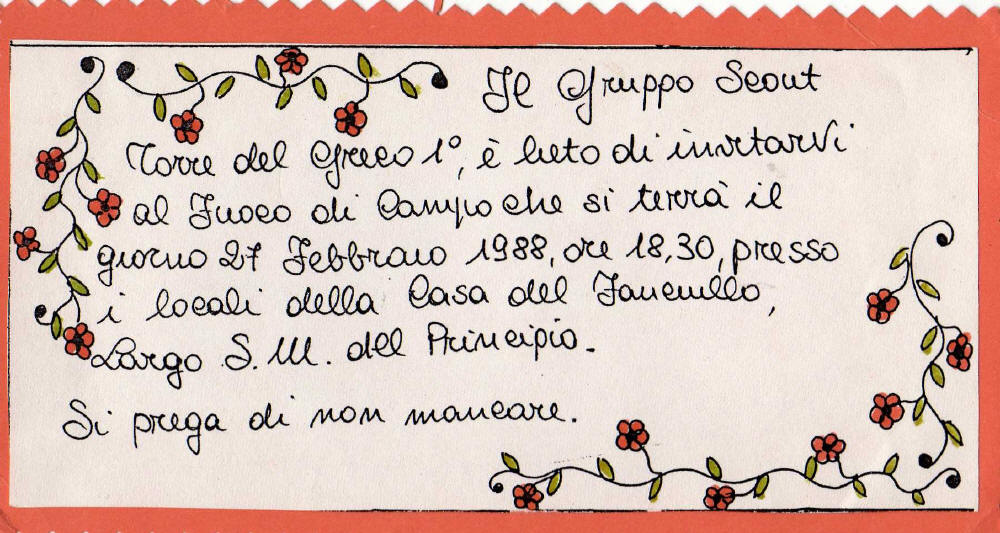 Il Gruppo Scout
Torre del Greco 1°, è lieto di invitarVi
al Fuoco di Campo che si terrà il
giorno 27 Febbraio 1988, ore 18,30, presso
i locali della Casa del Fanciullo,
Largo S. M. del Principio.
Si prega di non mancare.